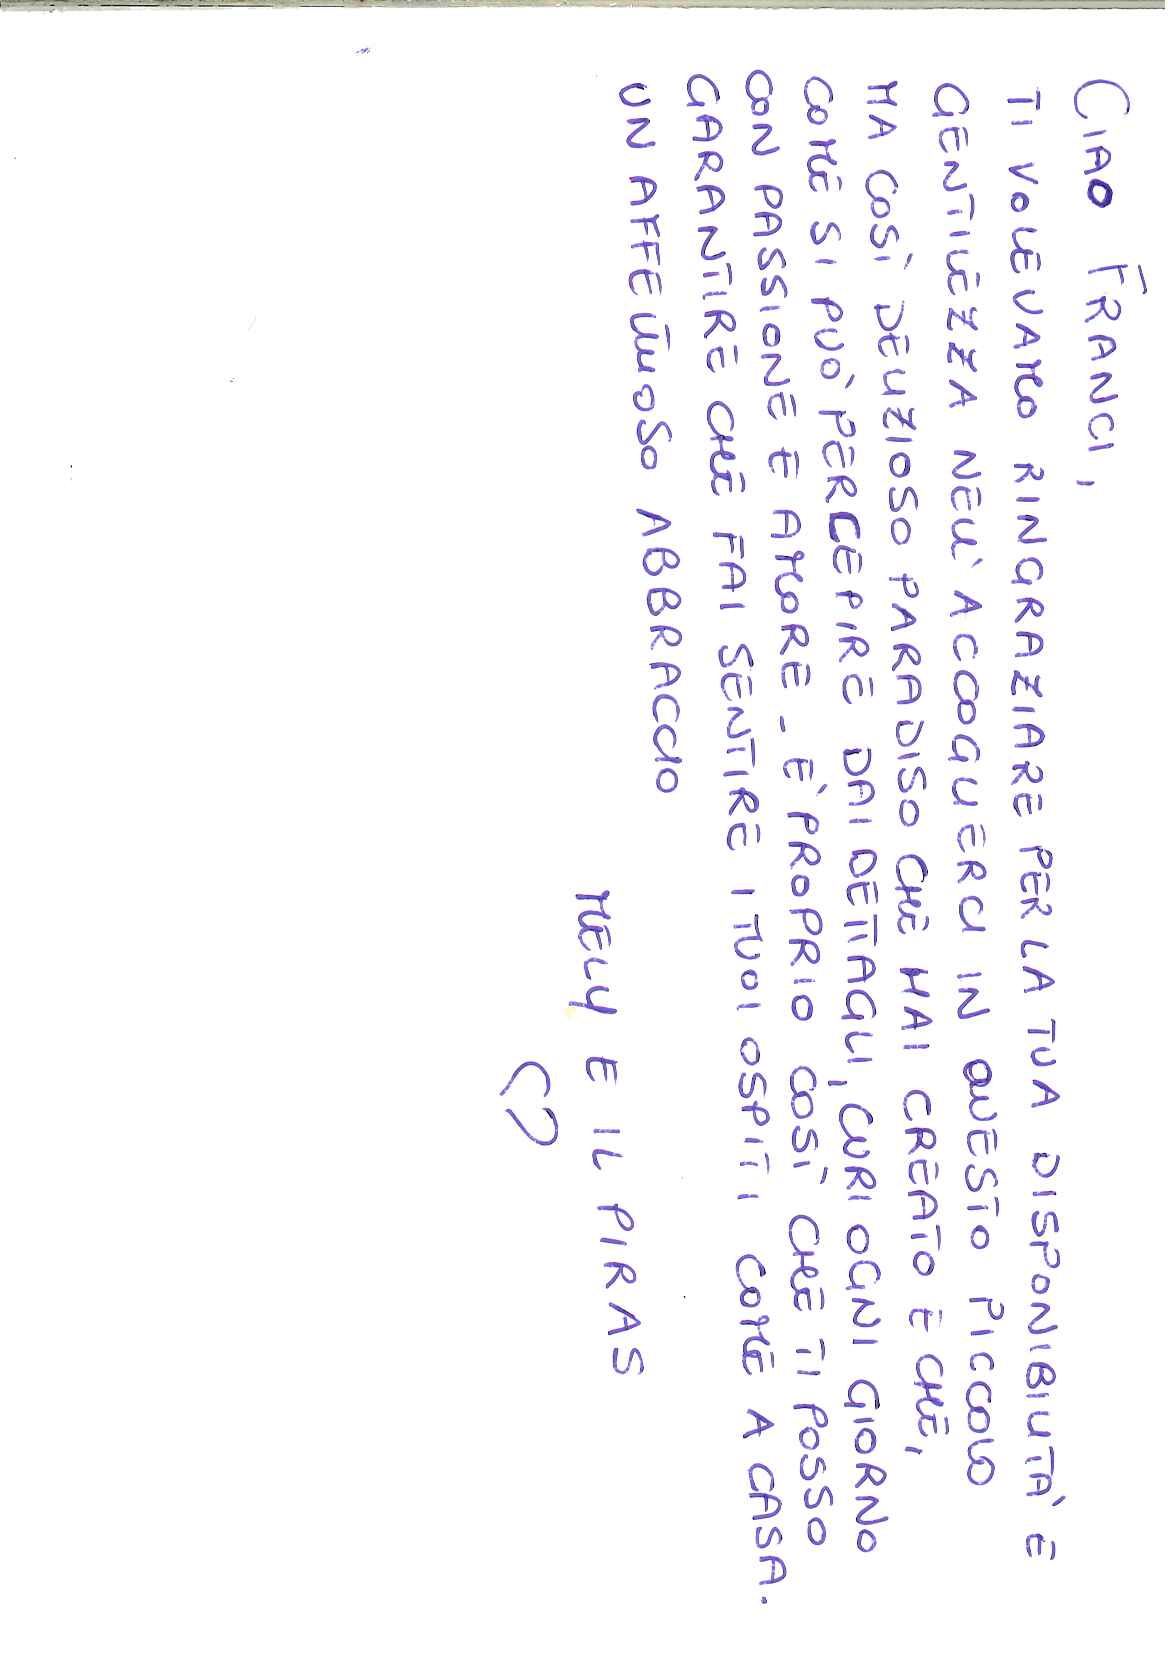 CIAO FRANCI,
TI VOLEVAMO RINGRAZIARE PER LA TUA DISPONIBILITÀ E
GENTILEZZA NELL'ACCOGLIERCI IN QUESTO PICCOLO
MA COSÌ DELIZIOSO PARADISO CHE HAI CREATO E CHE,
COME SI PUÒ PERCEPIRE DAI DETTAGLI, CURI OGNI GIORNO
CON PASSIONE E AMORE - È PROPRIO COSÌ CHE TI POSSO
GARANTIRE CHE FAI SENTIRE I TUOI OSPITI COME A CASA.
UN AFFETTUOSO ABBRACCIO
MELY E IL PIRAS